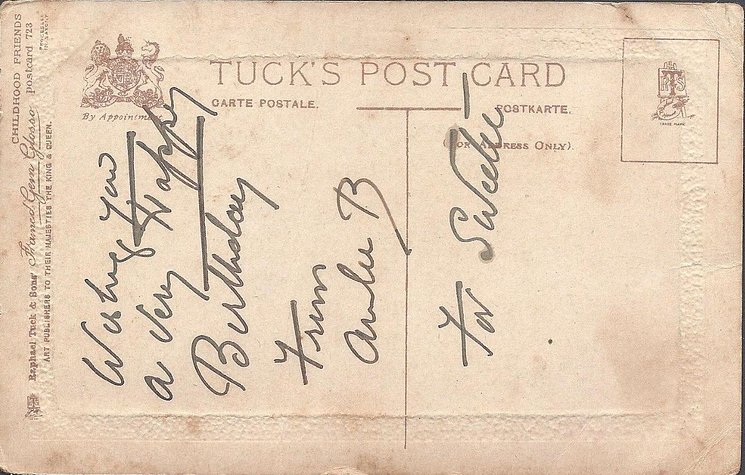 TUCK'S POST CARD
CARTE POSTALE.
POSTKARTE.
By Appointment
(FOR ADDRESS ONLY).
TRADE MARK
CHILDHOOD FRIENDS
Postcard 723
Raphael Tuck & Sons'
ART PUBLISHERS TO THEIR MAJESTIES THE KING & QUEEN.
Wishing You
a Very Happy
Birthday
From
B
For Sweetie